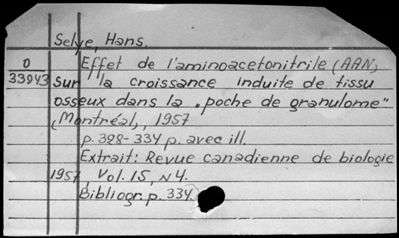 Selye, Hans.
O Effet de l'aminoacetonitrile (AAN)
33943 sur la croissance induite de tissu
osseux dans la „poche de granulome"
(Montréal), 1957
p. 328-334 p. avec ill.
Extrait: Revue canadienne de biologie
1957, Vol. 15, N 4.
Bibliogr. p. 334.